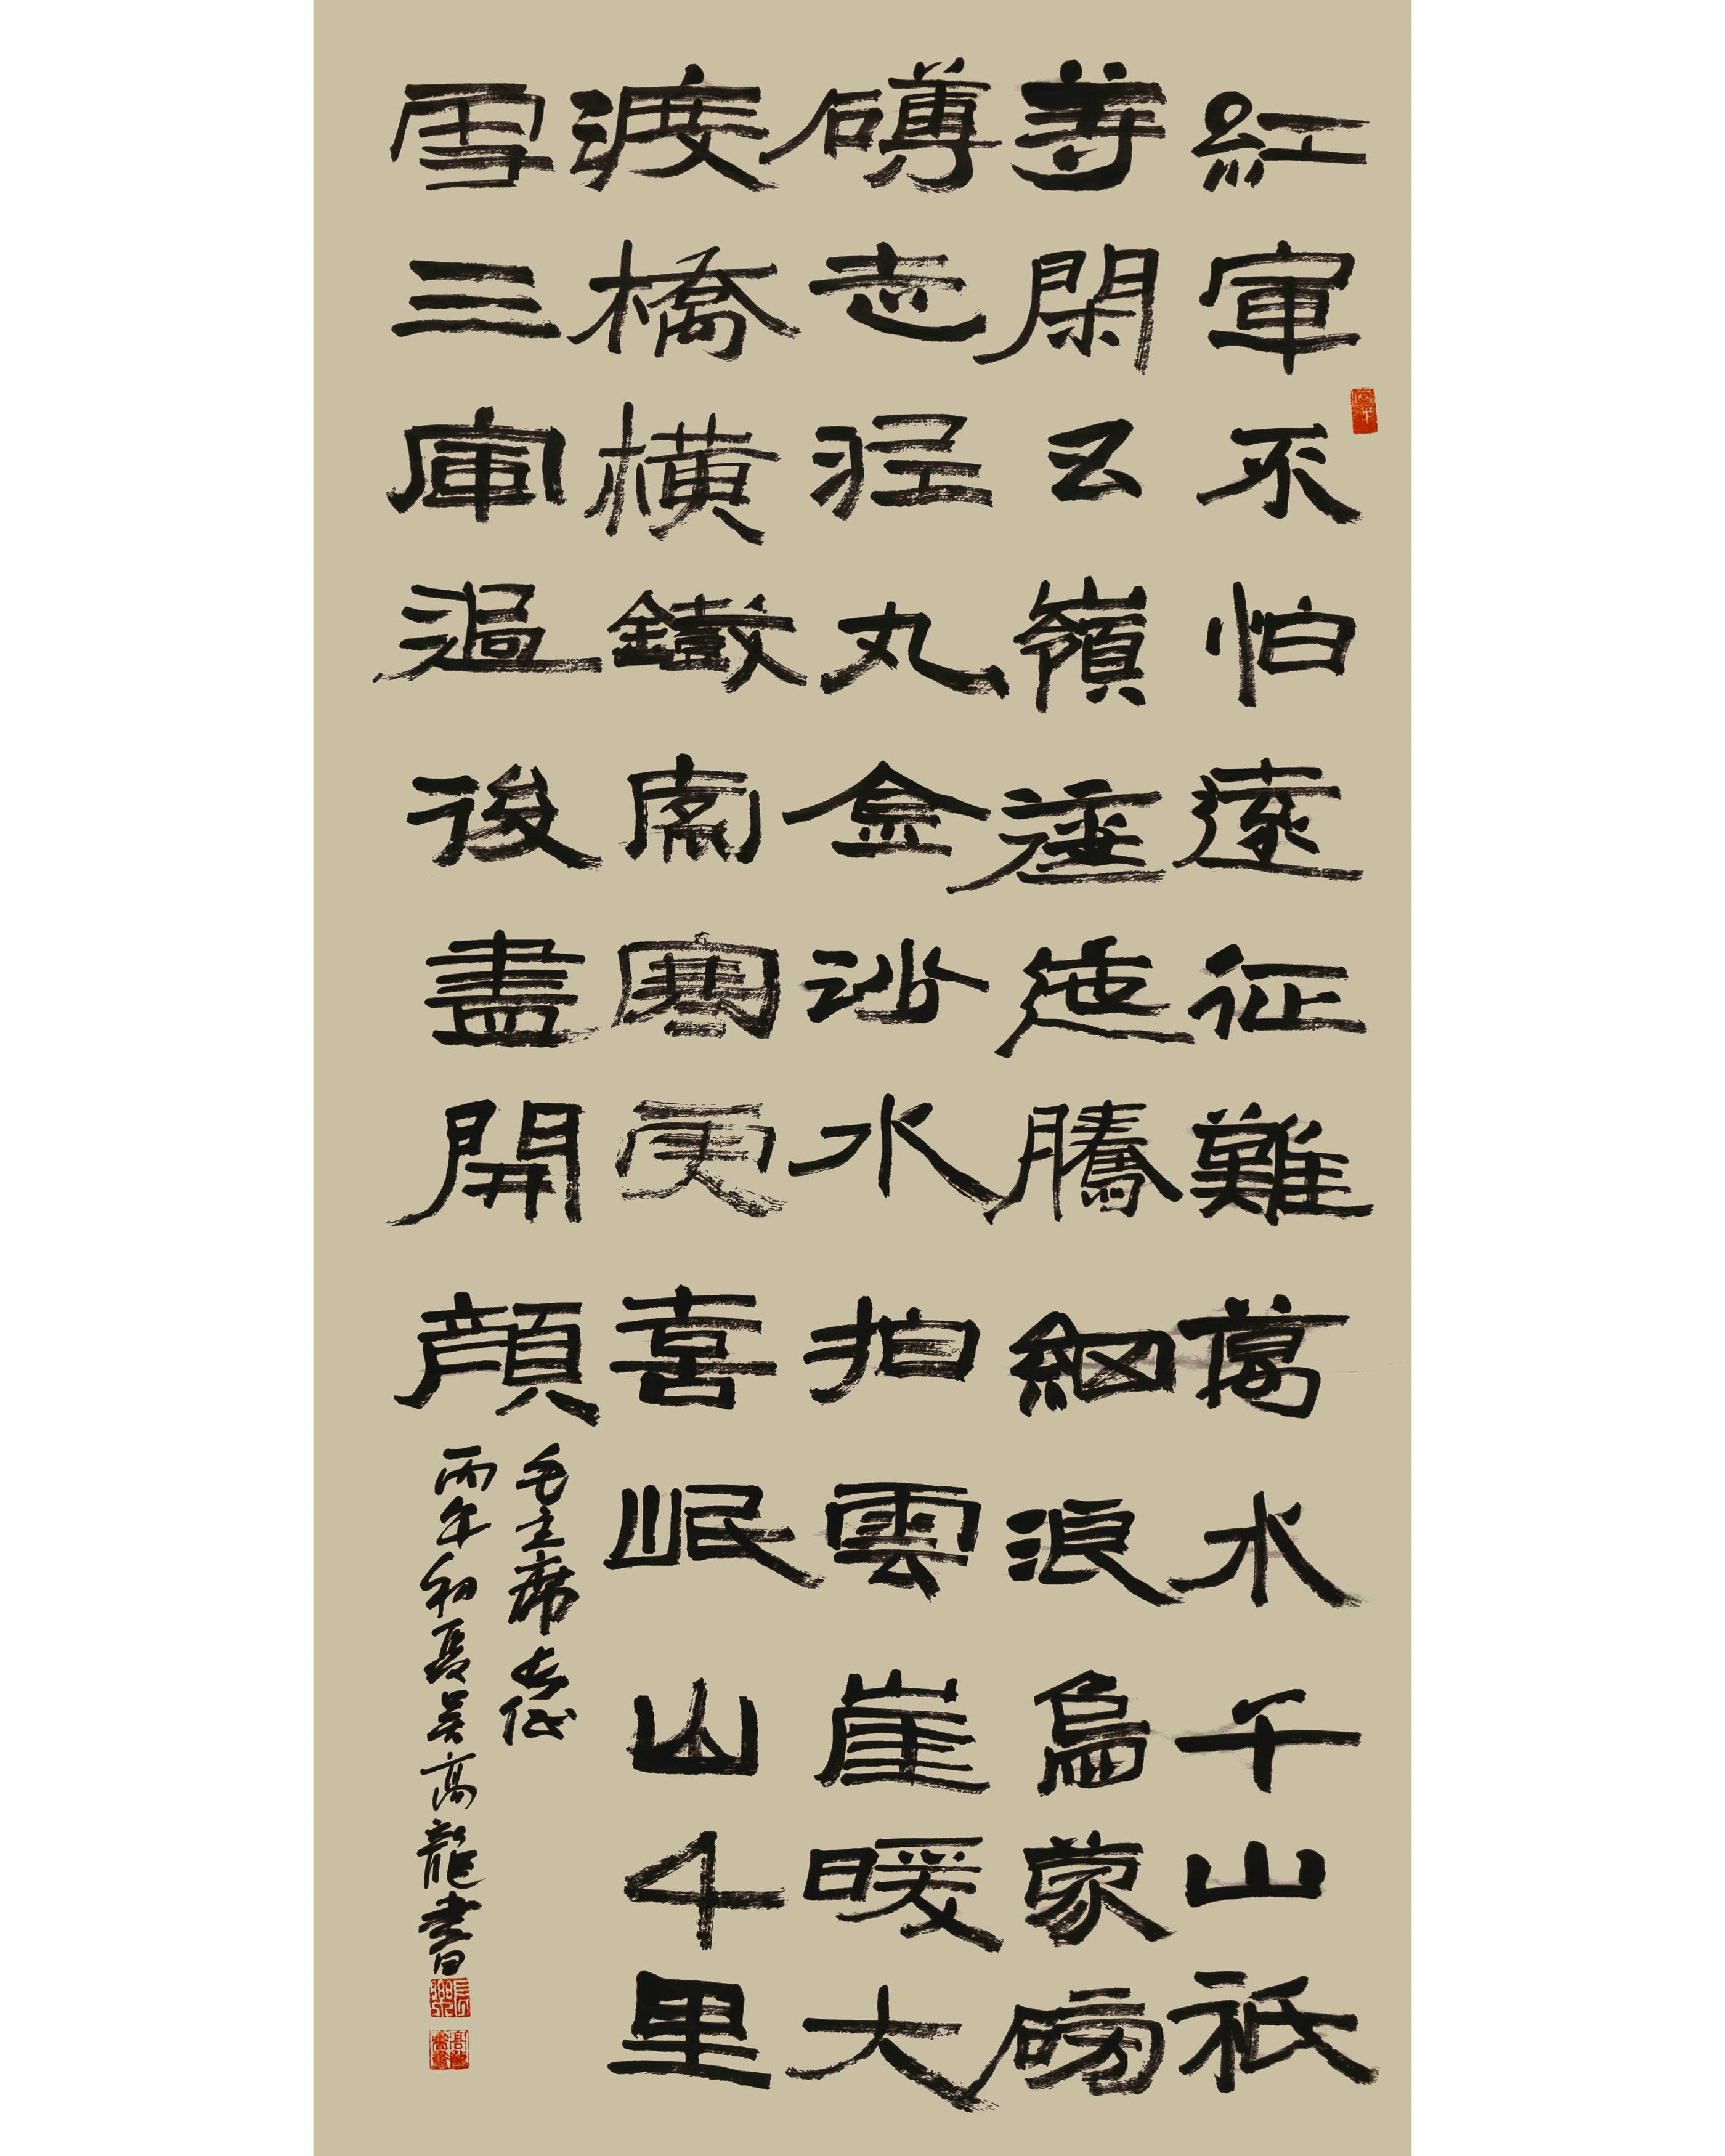 紅軍不怕遠征難萬水千山祇
等閑五嶺逶迤騰細浪烏蒙磅
礴走泥丸金沙水拍雲崖暖大
渡橋橫鐵索寒更喜岷山千里
雪三軍過後盡開顏
毛主席長征
丙午初夏吳高龍書